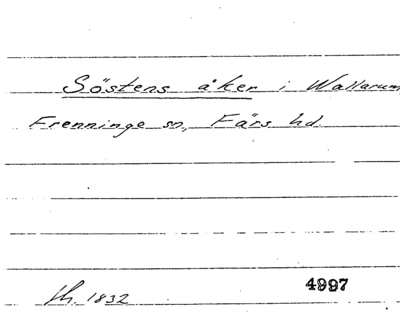 Söstens åker i Wallarum
Frenninge sn, Färs hd.
4997
lh. 1832